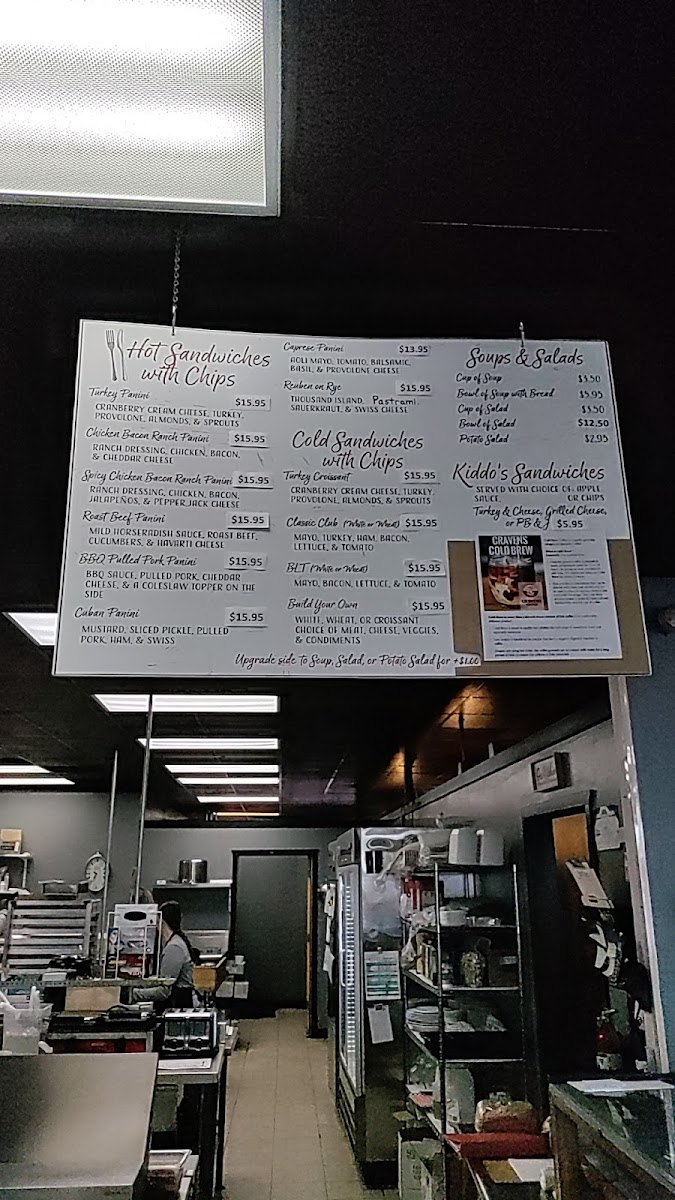 Hot Sandwiches
with Chips
Turkey Panini $15.95
CRANBERRY CREAM CHEESE, TURKEY,
PROVOLONE, ALMONDS, & SPROUTS
Chicken Bacon Ranch Panini $15.95
RANCH DRESSING, CHICKEN, BACON,
& CHEDDAR CHEESE
Spicy Chicken Bacon Ranch Panini $15.95
RANCH DRESSING, CHICKEN, BACON,
JALAPENOS, & PEPPERJACK CHEESE
Roast Beef Panini $15.95
MILD HORSERADISH SAUCE, ROAST BEEF,
CUCUMBERS, & HAVARTI CHEESE
BBQ Pulled Pork Panini $15.95
BBQ SAUCE, PULLED PORK, CHEDDAR
CHEESE, & A COLESLAW TOPPER ON THE
SIDE
Cuban Panini $15.95
MUSTARD, SLICED PICKLE, PULLED
PORK, HAM, & SWISS
Caprese Panini $13.95
AOLI MAYO, TOMATO, BALSAMIC,
BASIL, & PROVOLONE CHEESE
Reuben on Rye $15.95
THOUSAND ISLAND, Pastrami
SAUERKRAUT, & SWISS CHEESE
Cold Sandwiches
with Chips
Turkey Croissant $15.95
CRANBERRY CREAM CHEESE, TURKEY,
PROVOLONE, ALMONDS, & SPROUTS
Classic Club (White or Wheat) $15.95
MAYO, TURKEY, HAM, BACON,
LETTUCE, & TOMATO
BLT (White or Wheat) $15.95
MAYO, BACON, LETTUCE, & TOMATO
Build Your Own $15.95
WHITE, WHEAT, OR CROISSANT
CHOICE OF MEAT, CHEESE, VEGGIES,
& CONDIMENTS
Upgrade side to Soup, Salad, or Potato Salad for +$1.00
Soups & Salads
Cup of Soup $3.50
Bowl of Soup with Bread $5.95
Cup of Salad $3.50
Bowl of Salad $12.50
Potato Salad $2.95
Kiddo's Sandwiches
SERVED WITH CHOICE OF: APPLE
SAUCE, OR CHIPS
Turkey & Cheese, Grilled Cheese,
or PB & J $5.95
CRAVENS
COLD BREW